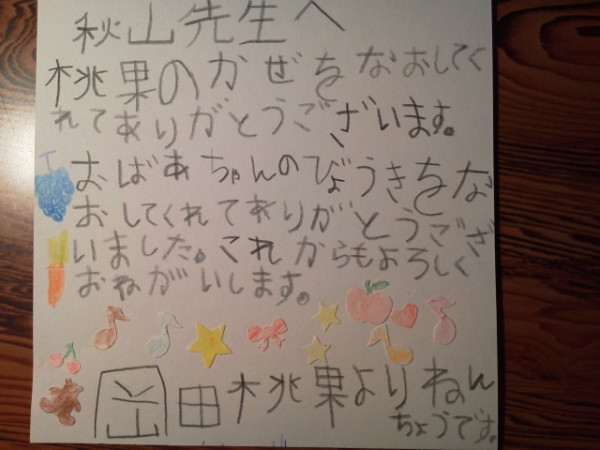 秋山先生へ
桃果のかぜをなおしてく
れてありがとうございます。
おばあちゃんのびょうきをな
おしてくれてありがとうござ
いました。これからもよろしく
おねがいします。
岡田桃果よりねん
ちょうです。